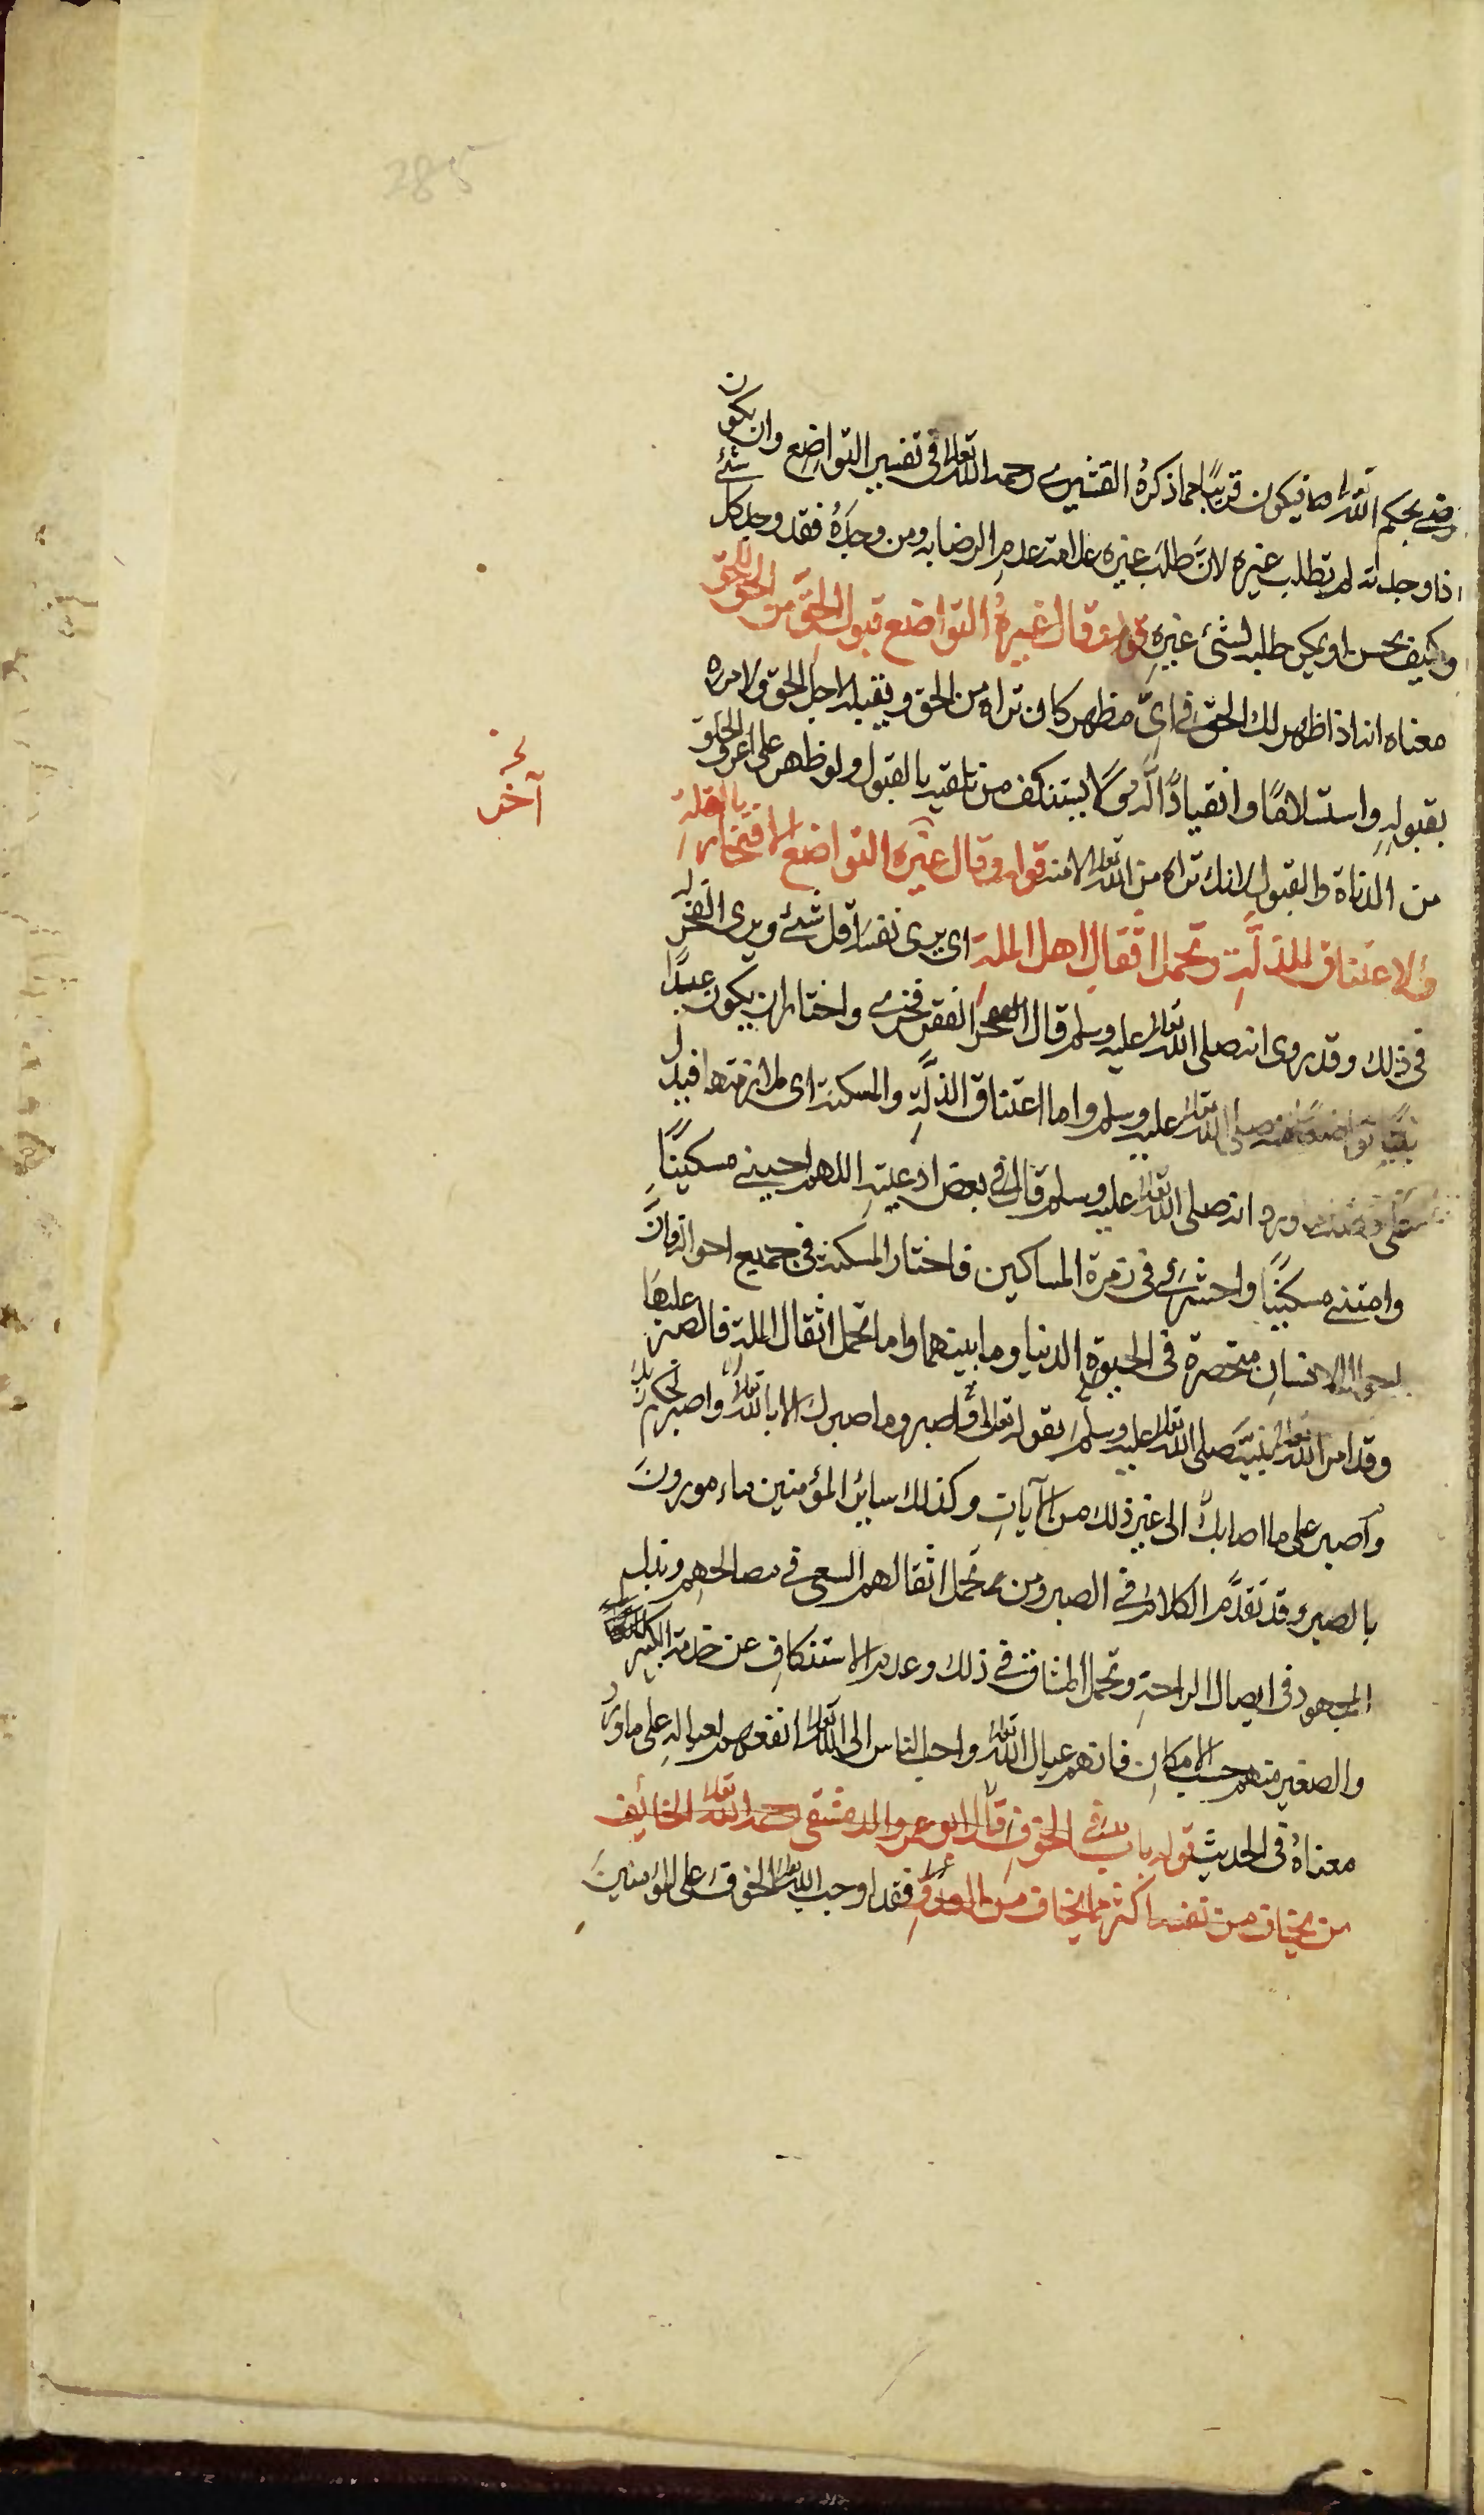 285
رضى بحكم الله تعالى فيكون قريبًا مما ذكرهُ القشيرى رحمه الله تعالى فى تفسير التواضِع وان يكون
اذا وجدته لم تطلب غيره لانَّ طلبَ غيره علامة عدمِ الرضا به ومن وجدَهُ فقد وجد كل شئ
وكيف يحسن او يمكن طلبه لشئ غيرهِ قوله وقال غيرهُ التواضع قبول الحقِّ من الحق للحق
معناه انه اذا ظهر لك الحق فى اىِّ مظهر كان تراه من الحق وتقبله لاجل الحق ولامره
بقبولهِ واستسلامًا وانقيادًا له ولا يستنكف من تلقيه بالقبول ولو ظهر على اعرق الخلق
من الدناة والقبول لانك تراه من الله تعالى لا منه قوله وقال غيره التواضع الافتخار بالقلة
آخر
والاعتناق للذلَّةِ وتحمل اثقال اهل الملة اى يرى نفسه اقل شئ ويرى الفخر
فى ذلك وقد روى انه صلى الله تعالى عليه وسلم قال الفقر فخرى واختار ان يكون عبدًا
نبيًا تواضعًا منه صلى الله تعالى عليه وسلم واما اعتناق الذلَّةِ والمسكنة اى ملازمتها فيدل
ورد انه صلى الله تعالى عليه وسلم قال فى بعض ادعيتهِ اللهم احينى مسكينًا
وامتنى مسكينًا واحشرنى فى زمرة المساكين فاختار المسكنة فى جميع احواله فانَّ
احوال الانسانِ منحصرة فى الحيوة الدنيا وما بينهما واما تحمل اثقال الملة فالصبر عليها
وقد امر الله تعالى نبيَّه صلى الله تعالى عليه وسلَّم بقوله تعالى واصبر وما صبرك الا بالله تعالى واصبر لحكم ربك
واصبر على ما اصابك الى غير ذلك من الآياتِ وكذلك سائر المؤمنين مامورونَ
بالصبر وقد تقدَّم الكلام فى الصبر ومن تحمل اثقالهم السعى فى مصالحهم وبذل
المجهود فى ايصال الراحةِ وتحمل المشاق فى ذلك وعدم الاستنكافِ عن خدمة الكبير
والصغير منهم حسب الامكانِ فانهم عيال الله تعالى واحب الناس الى الله تعالى انفعهم لعيالهِ على ما ورد
معناهُ فى الحديث قوله باب فى الخوف قال ابو عمرو الدمشقى رحمه الله تعالى الخائف
من يخاف من نفسه اكثر مما يخاف من العدوِّ فقد اوجب الله تعالى الخوف على المؤمنينَ